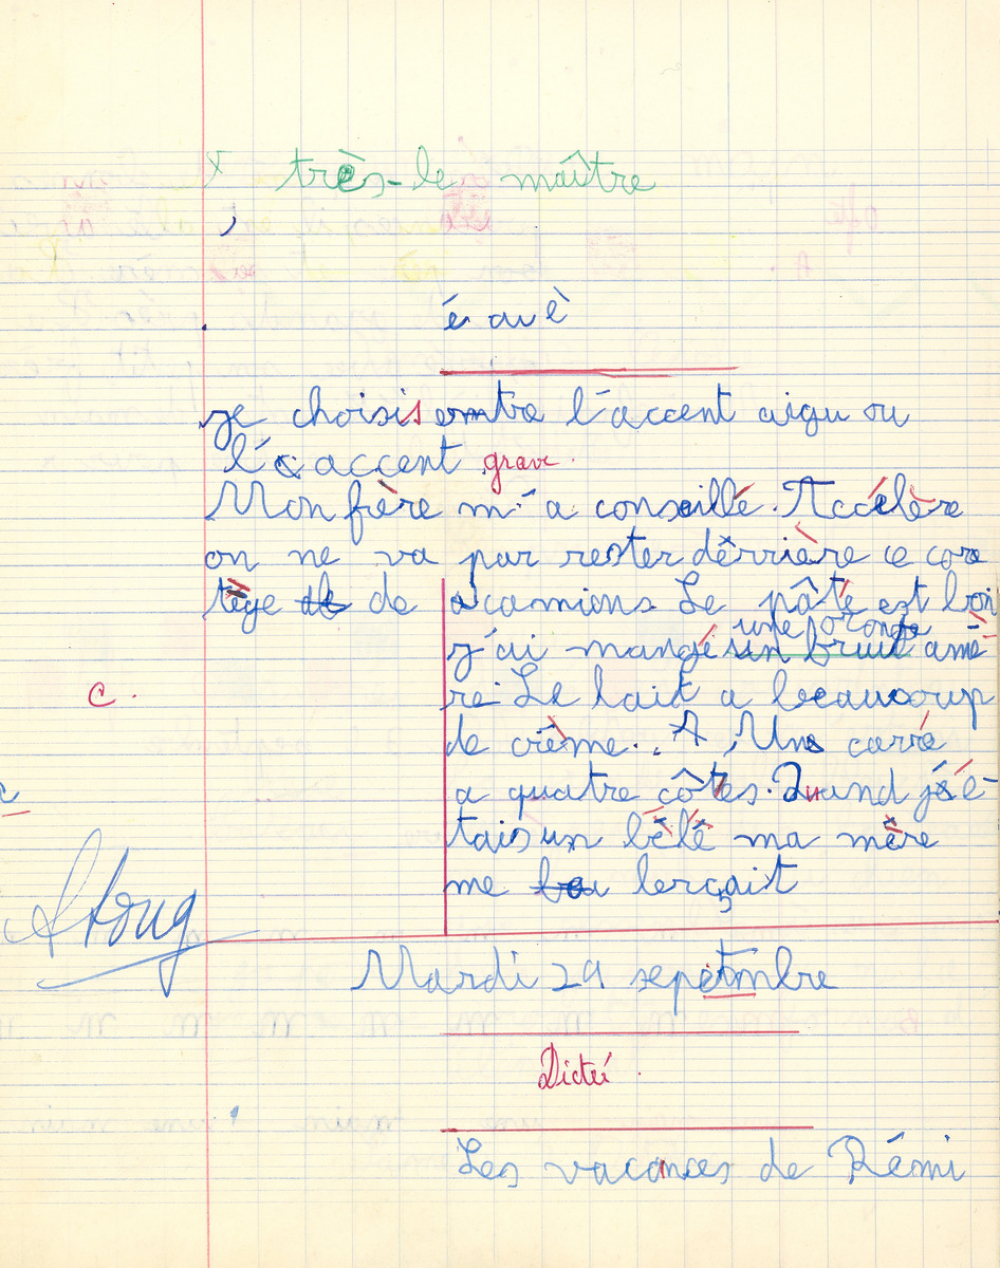 très-le maître
é ou è
je choisis entre l'accent aigu ou
l'accent grave.
Mon frère m'a conseillé. Accélère
on ne va pas rester dérrière ce cor
tège de camions. Le pâté est bon
une orange
j'ai mangé un fruit amè
re. Le lait a beaucoup
de crème. A Un carré
C.
a quatre côtés. Quand j'é-
tais un bébé ma mère
me berçait
Mardi 29 septembre
Dictée.
Les vacances de Rémi